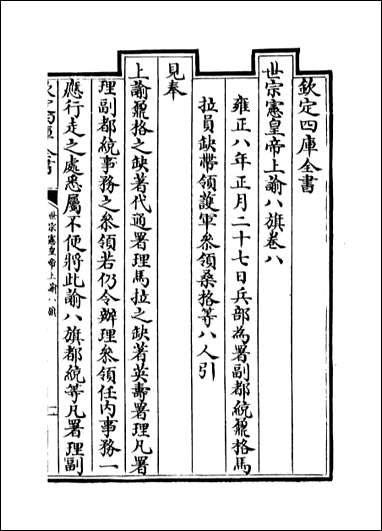 欽定四庫全書
世宗憲皇帝上諭八旗卷八
雍正八年正月二十七日兵部為署副都統鼐格馬
拉員缺帶領護軍叅領桑格等八人引
見奉
上諭鼐格之缺著代通署理馬拉之缺著英壽署理凡署
理副都統事務之叅領若仍令辦理叅領任內事務一
應行走之處悉屬不便將此諭八旗都統等凡署理副
世宗憲皇帝上諭八旗